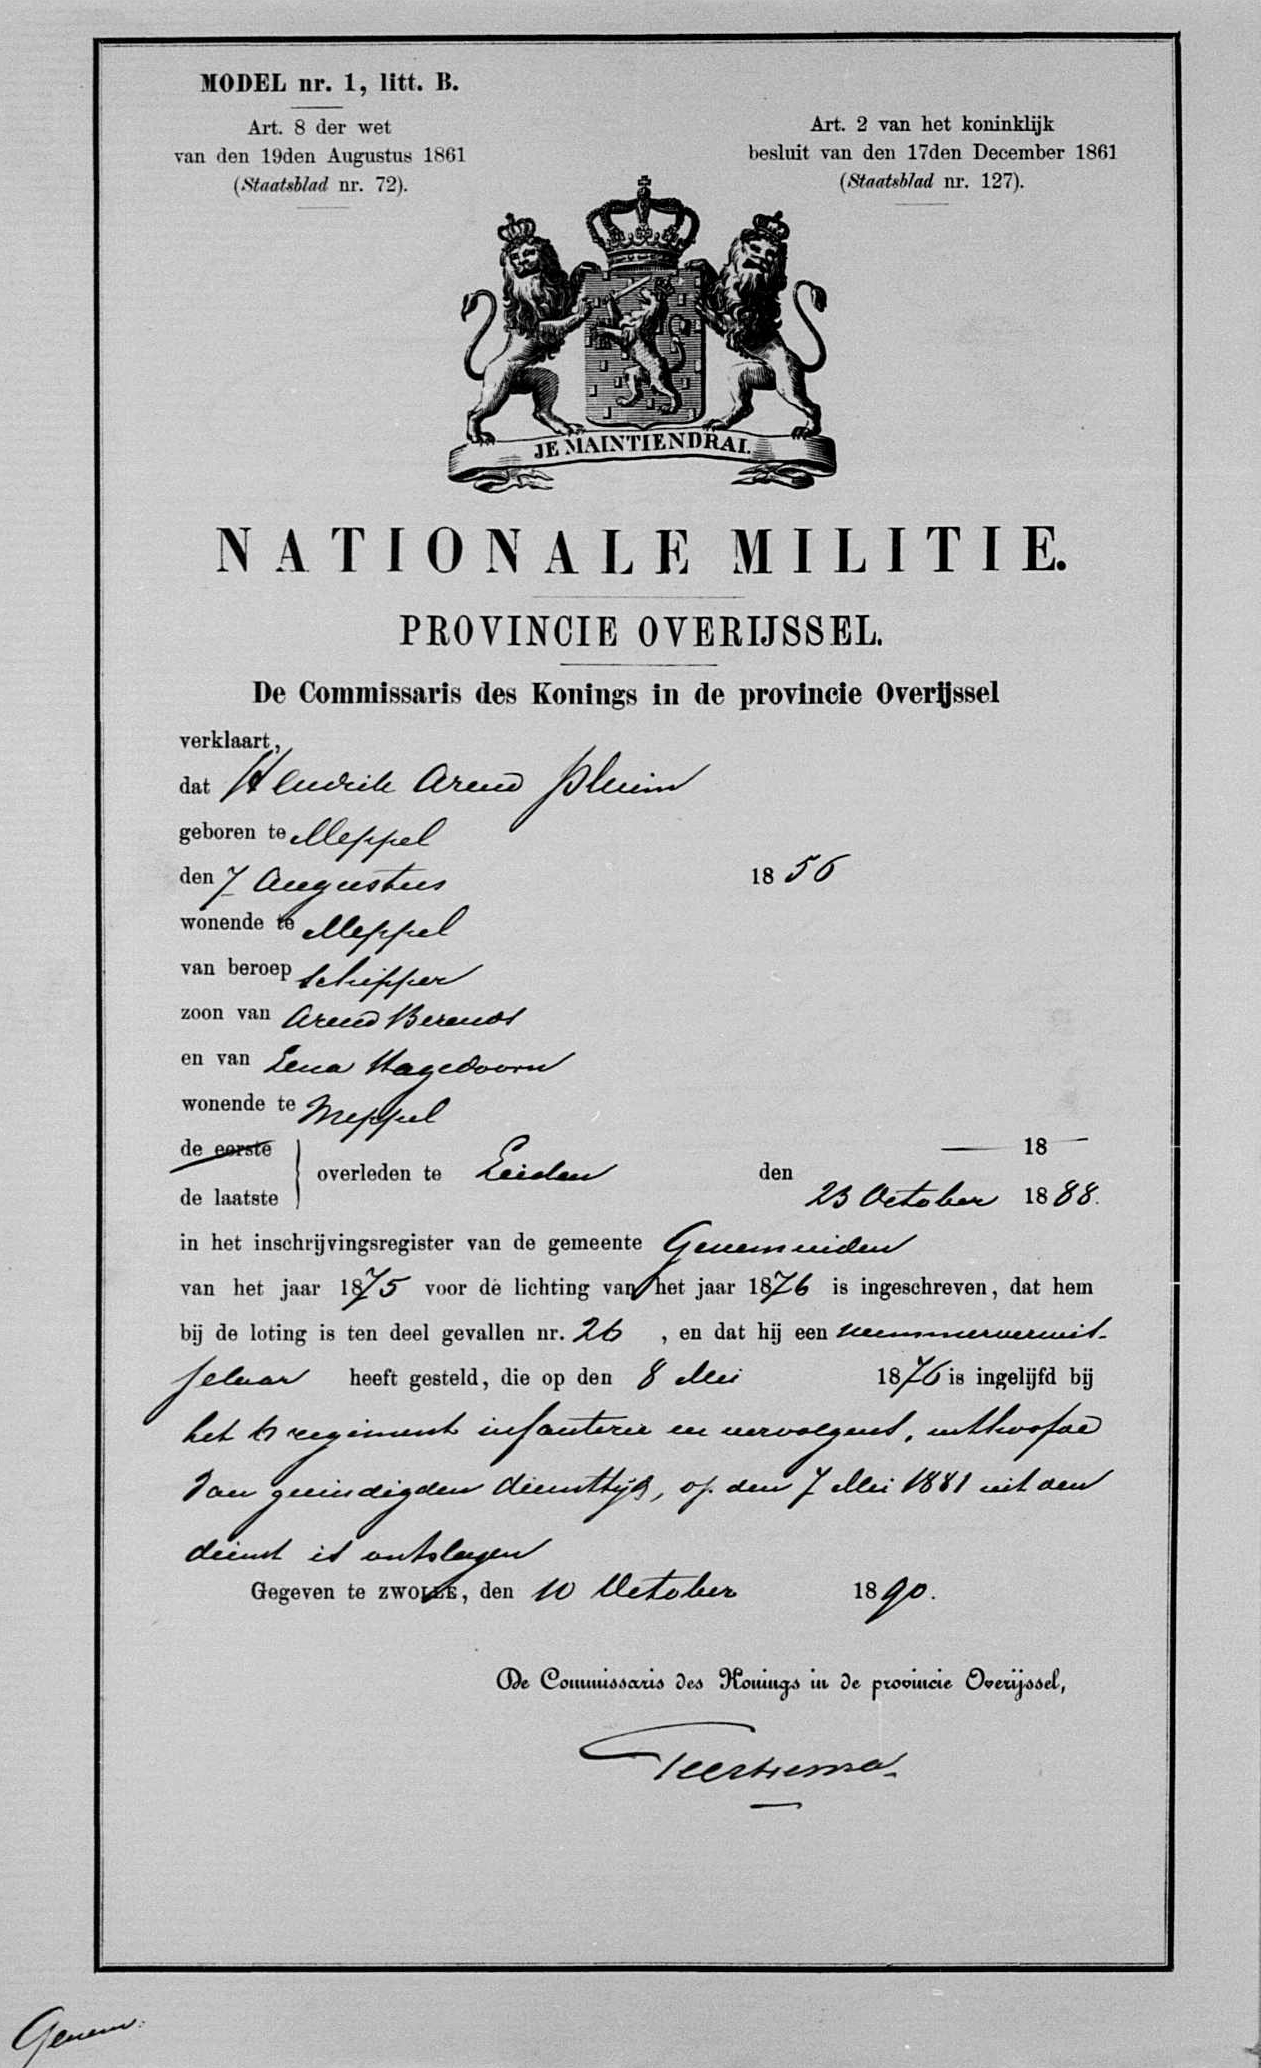 MODEL nr. 1, litt. B.
Art. 8 der wet
van den 19den Augustus 1861
(Staatsblad nr. 72).
Art. 2 van het koninklijk
besluit van den 17den December 1861
(Staatsblad nr. 127).
JE MAINTIENDRAI.
NATIONALE MILITIE.
PROVINCIE OVERIJSSEL.
De Commissaris des Konings in de provincie Overijssel
verklaart,
dat Hendrik Arend Pluim
geboren te Meppel
den 7 Augustus 1856
wonende te Meppel
van beroep schipper
zoon van Arend Berends
en van Lena Hagedoorn
wonende te Meppel
de eerste 18
overleden te Leiden den
de laatste 23 October 1888.
in het inschrijvingsregister van de gemeente Genemuiden
van het jaar 1875 voor de lichting van het jaar 1876 is ingeschreven, dat hem
bij de loting is ten deel gevallen nr. 26 , en dat hij een nummerverwis-
selaar heeft gesteld, die op den 8 Mei 1876 is ingelijfd bij
het 6 regiment infanterie en vervolgens, uit hoofde
van geëindigden diensttijd, op den 7 Mei 1881 uit den
dienst is ontslagen
Gegeven te ZWOLLE, den 10 October 1890.
De Commissaris des Konings in de provincie Overijssel,
Geertsema
Genem: